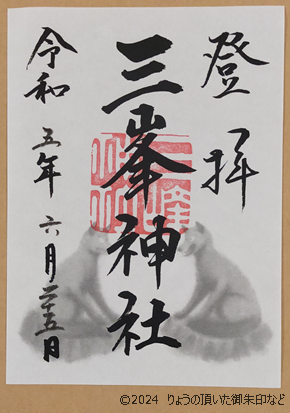 登拝
三峯神社
令和五年六月二十五日
©2024 りょうの頂いた御朱印など